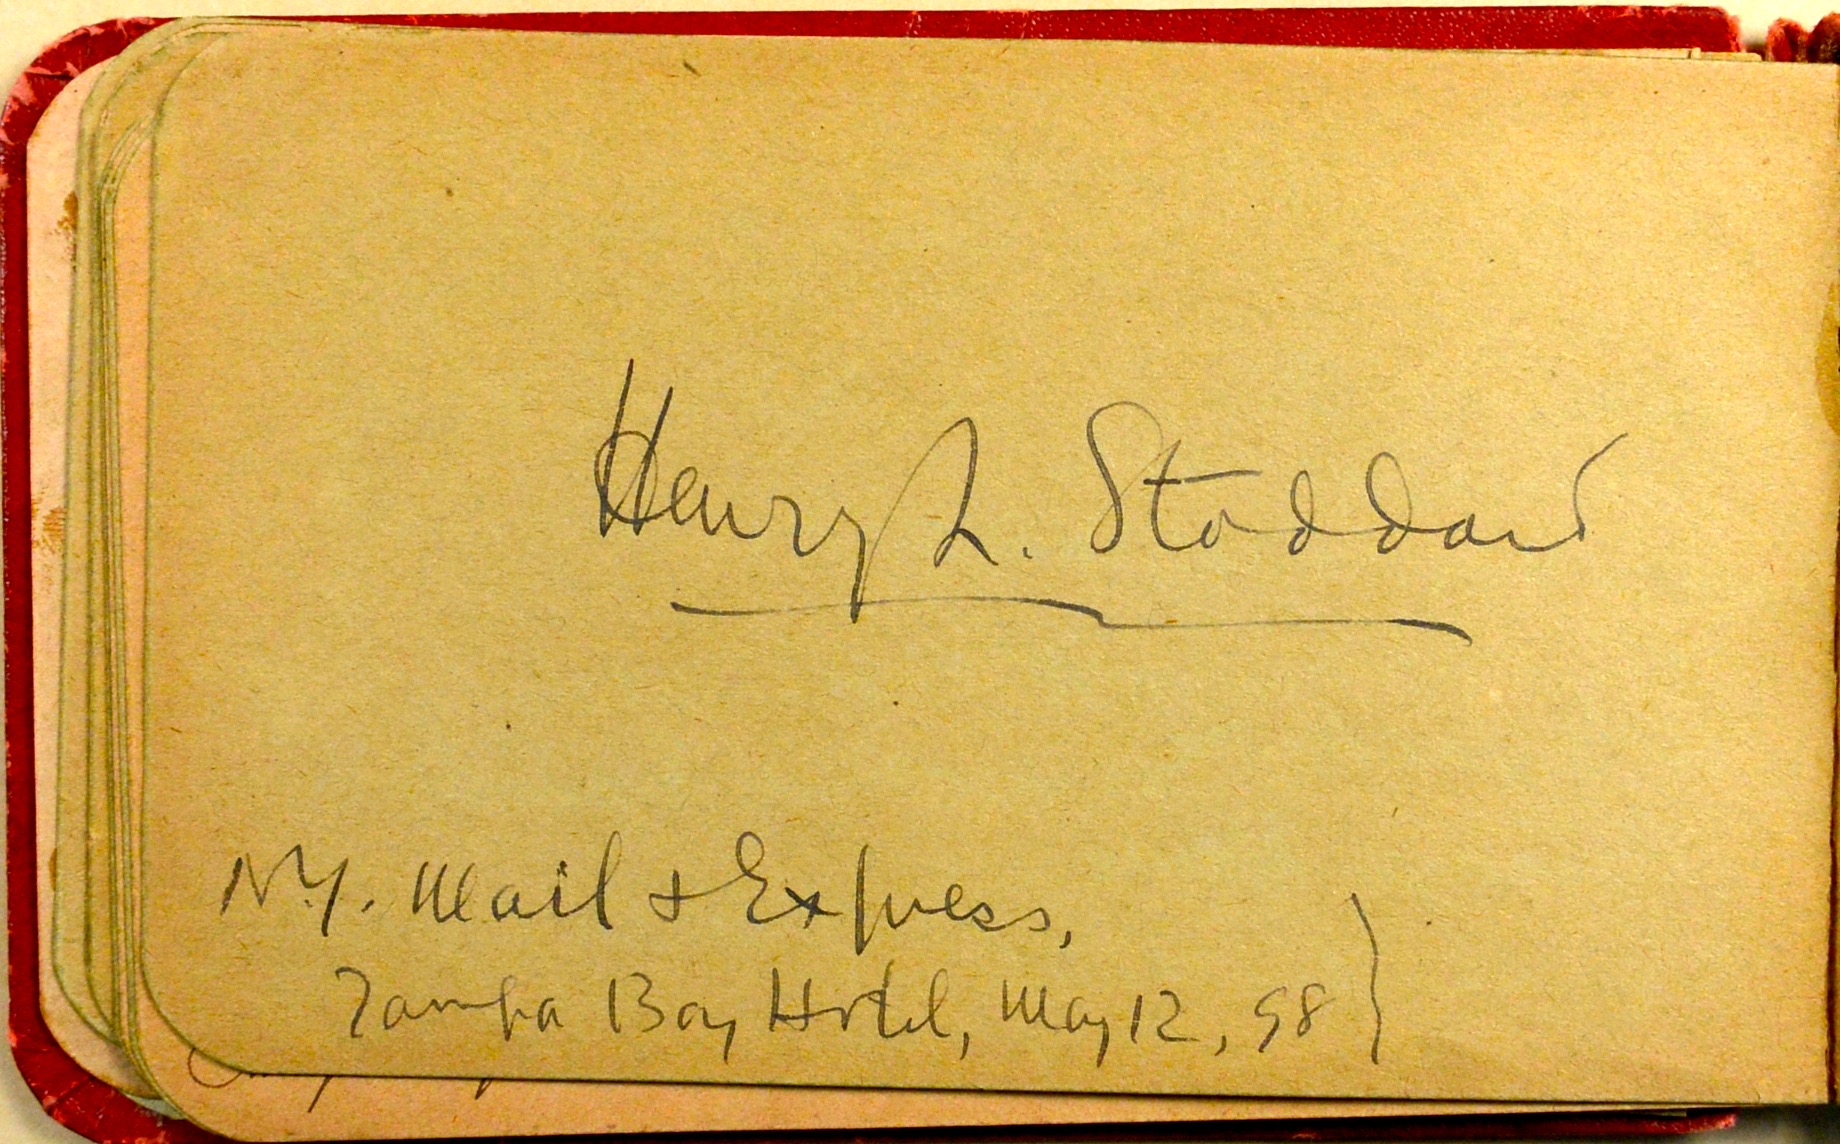 Henry L. Stoddard
N.Y. Mail & Express,
Tampa Bay Hotel, May 12, 98